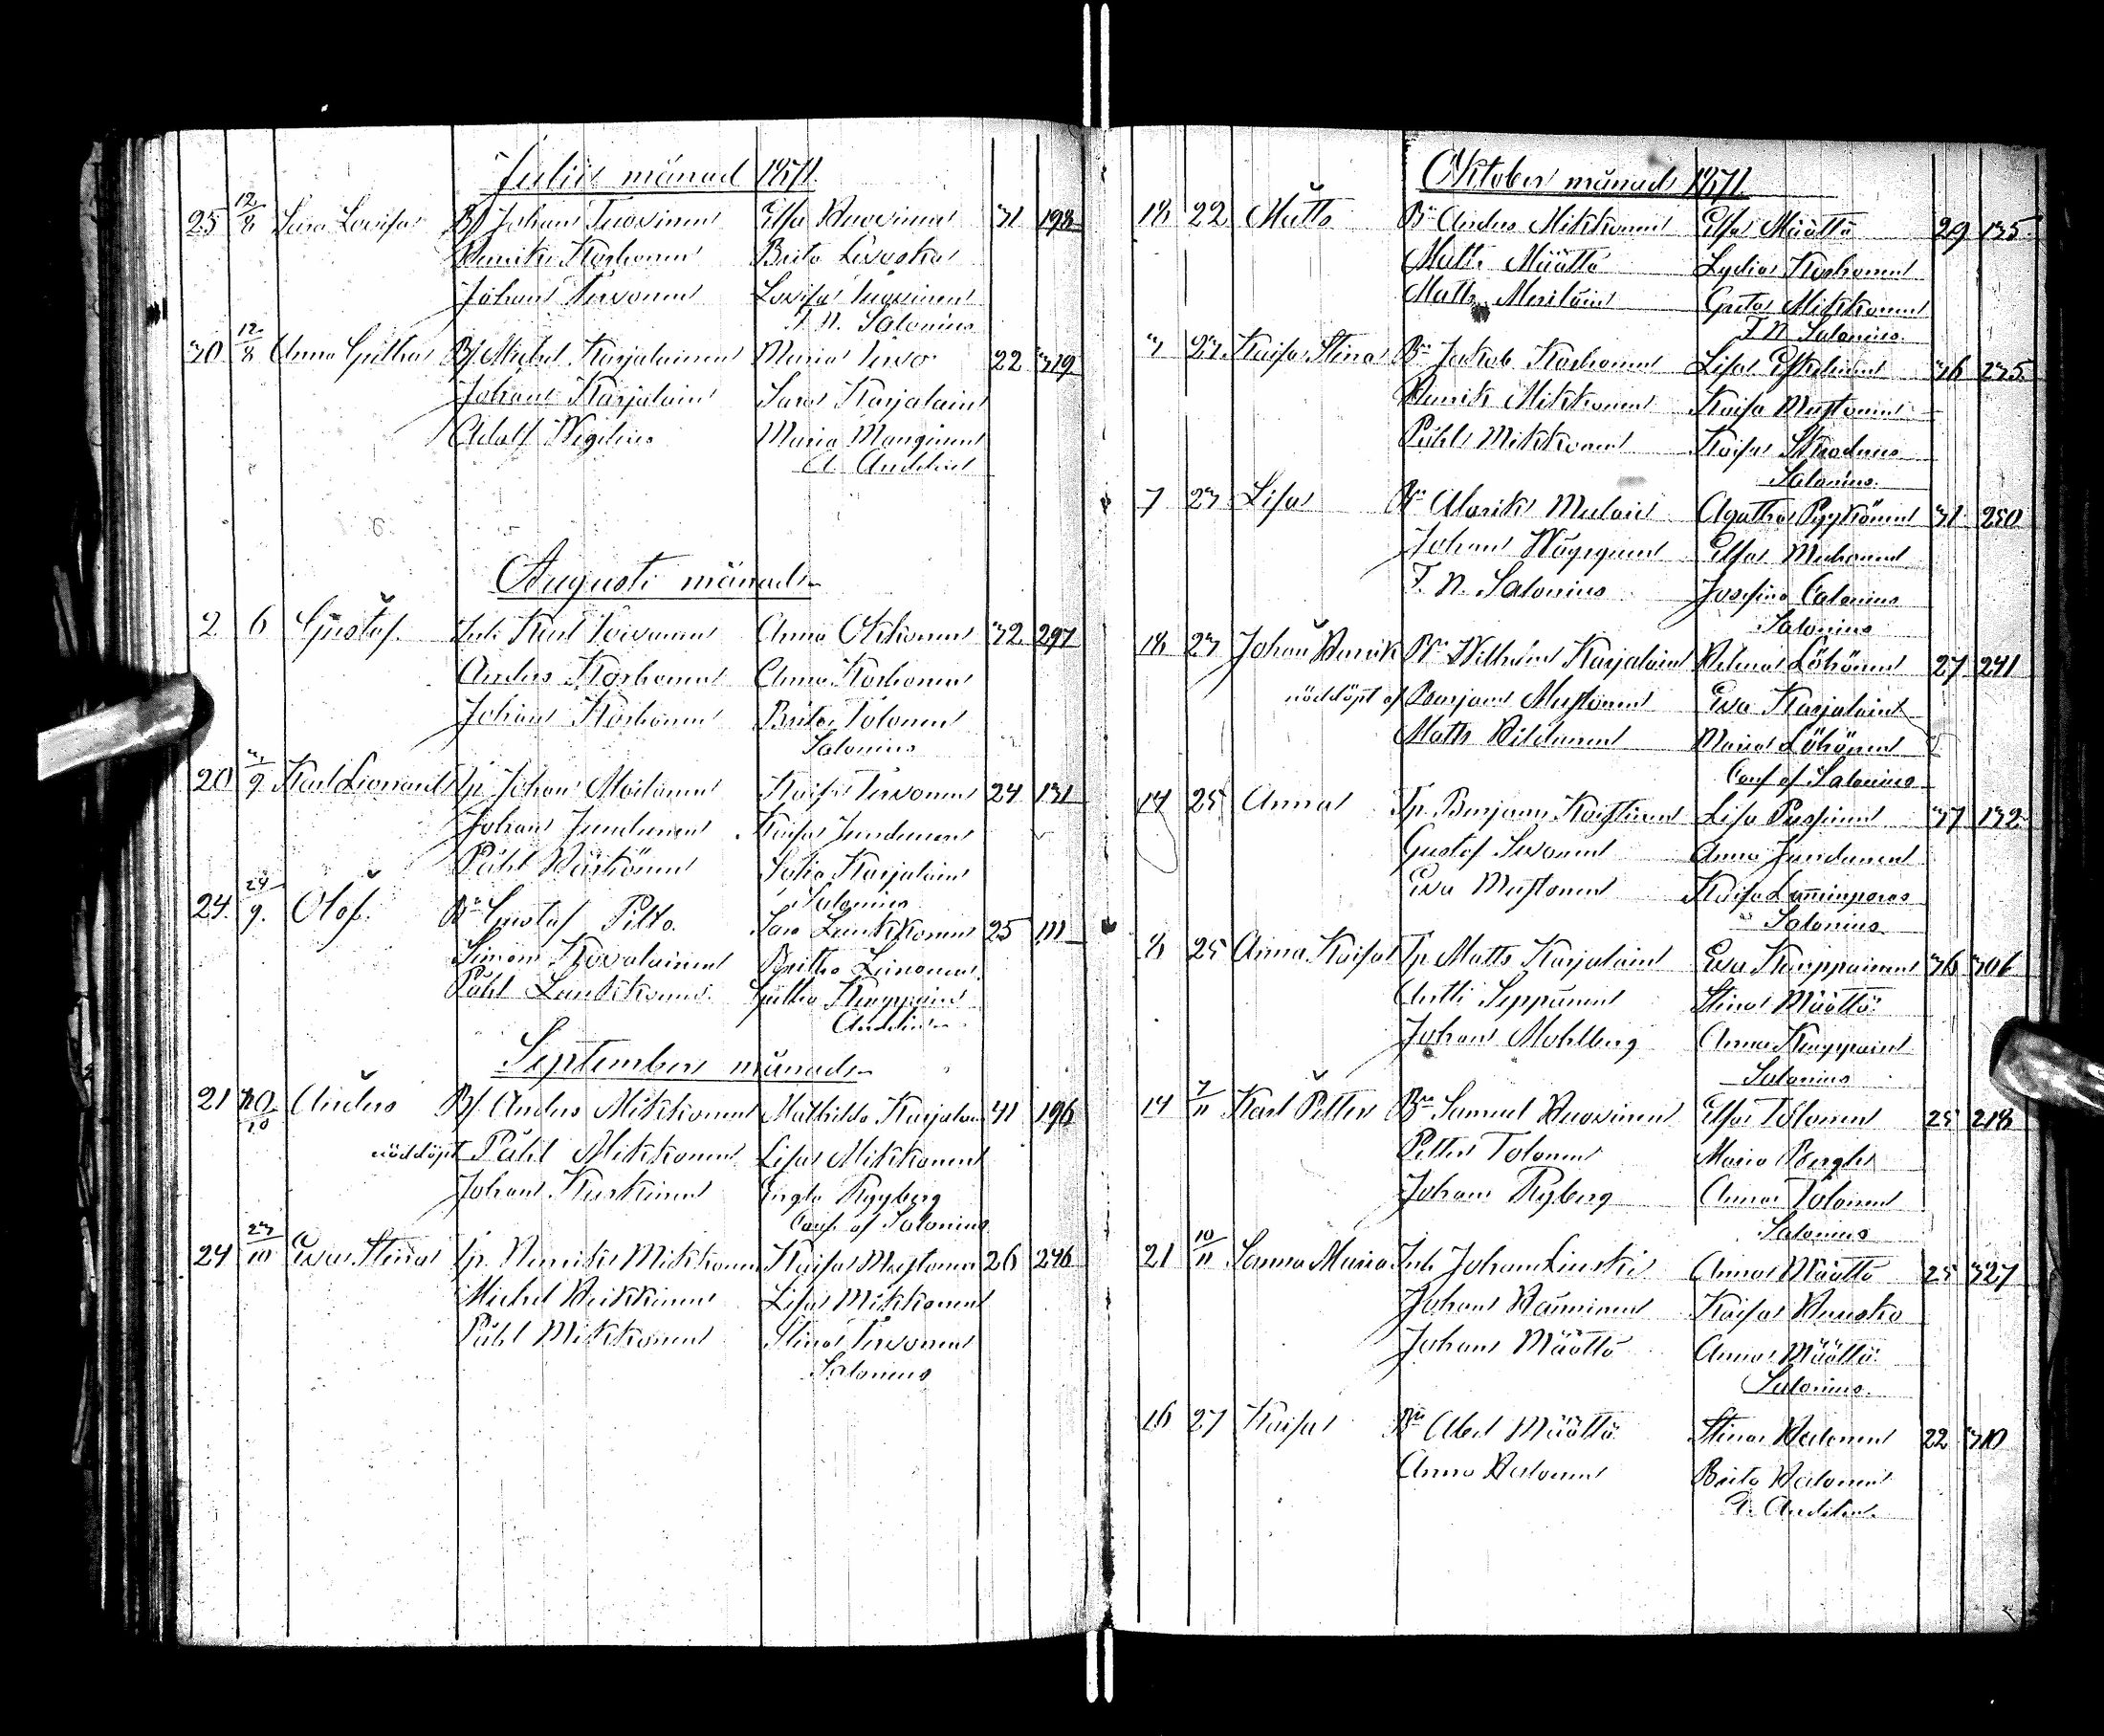 Julii månad 1871.
25 12/8 Sara Lovisa Bf Johan Tuovinen Elsa Huovinen 31 198
Henrik Korhonen Brita Livoska
Johan Tervonen Lovisa Tuovinen
F. N. Salonius
30 12/8 Anna Githa Bf Michel Karjalainen Maria Tervo 22 319
Johan Karjalain Sara Karjalain
Adolf Wegelius Maria Manginen
A. Andelin
Augusti månad
2 6 Gustaf Inh Karl Toivanen Anna Okkonen 32 297
Anders Korhonen Anna Korhonen
Johan Korhonen Brita Tolonen
Salonius
20 3/9 Karl Leonard Tp Johan Moilanen Kaisa Tervonen 24 131
Johan Juntunen Kaisa Juntunen
Påhl Väisänen Sofia Karjalain
Salonius
24 24/9 Olof Bn Gustaf Piltto Sara Laukkonen 25 111
Simon Kovalainen Britha Leinonen
Påhl Laukkonen Githa Kemppain
Andelin
September månad
21 10/10 Anders Bf Anders Mikkonen Mathilda Karjalain 41 196
nöddöpt Påhl Mikkonen Lisa Mikkonen
Johan Kurkinen Engla Ryyberg
Conf. af Salonius
24 23/10 Eva Stina Tp. Henrik Mikkonen Kaisa Mustonen 26 246
Michel Heikkinen Lisa Mikkonen
Påhl Mikkonen Stina Tervonen
Salonius
Oktober månad 1871.
18 22 Matts Bn Anders Mikkonen Elsa Määttä 29 135
Matts Määttä Lydia Korhonen
Matts Meriläin Greta Mikkonen
F. N. Salonius
3 23 Kaisa Stina Bn Jakob Korhonen Lisa Eskelinen 36 235
Henrik Mikkonen Kaisa Mustonen
Påhl Mikkonen Kaisa
Salonius
7 23 Lisa Bn Alarik Mulari Agatha Pyykönen 31 250
Johan Wäyrynen Elsa
F. N. Salonius Josefina Calonius
Salonius
18 23 Johan Henrik Bn Wilhelm Karjalain Helena Löhönen 27 241
nöddöpt af Benjam Mustonen Eva Karjalain
Matts Hiltunen Maria Löhönen
Conf af Salonius
14 25 Anna Tp. Benjam Karstinen Lisa Pussinen 37 132
Gustaf Tervonen Anna Juntunen
Eva Mustonen Kaisa Lämminparras
Salonius
8 25 Anna Kaisa Tp Matts Karjalain Eva Kemppainen 36 306
Antti Seppänen Stina Määttä
Johan Mohlberg Anna Kemppain
Salonius
14 7/11 Karl Petter Bn Samuel Huovinen Elsa Tolonen 25 218
Petter Tolonen Maria Bergh
Johan Ryberg Anna Tolonen
Salonius
21 10/11 Sanna Maria Inh Johan Linski Anna Määttä 25 327
Johan Väänänen Kaisa Heusko
Johan Määttä Anna Määttä
Salonius
16 27 Kaisa Bn Abel Määttä Stina Halonen 22 310
Anna Halonen Brita Halonen
A. Andelin